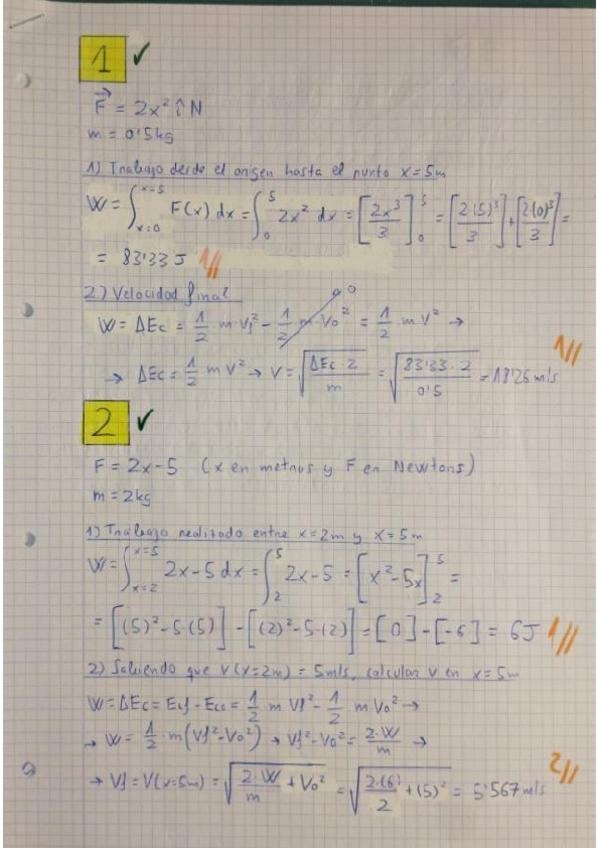 1 ✓
F⃗ = 2x² î N
m = 0'5kg
1) Trabajo desde el origen hasta el punto x = 5m
W = ∫_{x=0}^{x=5} F(x) dx = ∫_0^5 2x² dx = [2x³/3]_0^5 = [2·(5)³/3] + [2·(0)³/3] =
= 83'33 J 1//
2.) Velocidad final
W = ΔEc = 1/2 m Vf² - 1/2 m V0² → 0 = 1/2 m V² →
→ ΔEc = 1/2 m V² → V = √(ΔEc·2/m) = √(83'33·2/0'5) = 18'26 m/s 1//
2 ✓
F = 2x-5 (x en metros y F en Newtons)
m = 2kg
1) Trabajo realizado entre x=2m y x=5m
W = ∫_{x=2}^{x=5} 2x-5 dx = ∫_2^5 2x-5 = [x²-5x]_2^5 =
= [(5)²-5·(5)] - [(2)²-5·(2)] = [0] - [-6] = 6J 1//
2) Sabiendo que V(x=2m) = 5m/s, calcular V en x=5m
W = ΔEc = Ecf - Eco = 1/2 m Vf² - 1/2 m V0² →
→ W = 1/2 m(Vf²-V0²) → Vf²-V0² = 2·W/m →
→ Vf = V(x=5m) = √(2·W/m + V0²) = √(2·(6)/2 + (5)²) = 5'567 m/s 2//